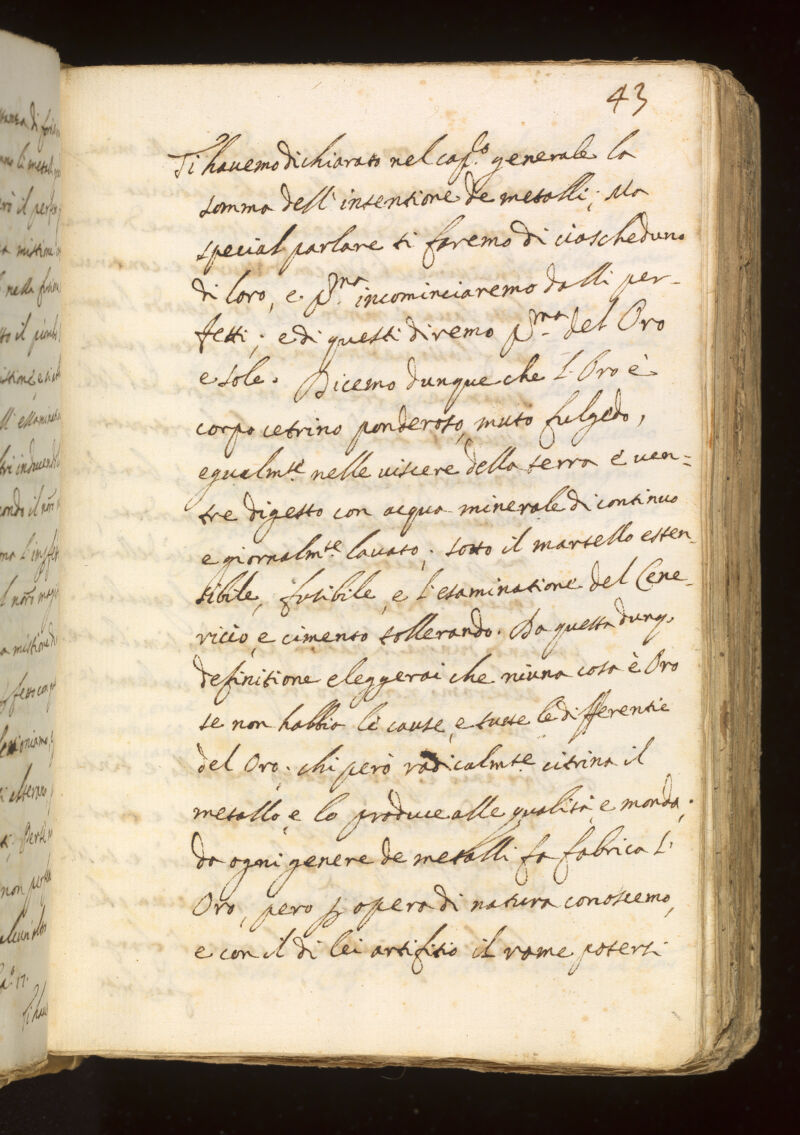 43
Ti havemo dichiarato nel cap.º generale la
somma dell'intentione de metalli; Ma
special parlare ti faremo di ciascheduno
di loro, e p.ma incominciaremo dalli per-
fetti; e di questi diremo p.ma del Oro
e sole. Dicemo dunque che l'Oro è
corpo cetrino ponderoso, muto fulgedo,
egualm.te nelle viscere della terra e ven-
tre digesto con acqua minerale di continuo
e giornalm.te lavato, sotto il martello esten-
sibile, fusibile, e l'esaminatione del Cene-
riccio, e cimento tollerando. Da questa dunq.
definitione eleggerai che niuna cosa è Oro
se non habbia le cause, e tutte le differentie
del Oro. chi però radicalm.te citrina il
metallo, e lo produce alle qualità, e monda,
da ogni genere de metalli fa fabrica l'
Oro, pero p opera di natura conoscemo,
e con il di lei artifitio il rame potersi